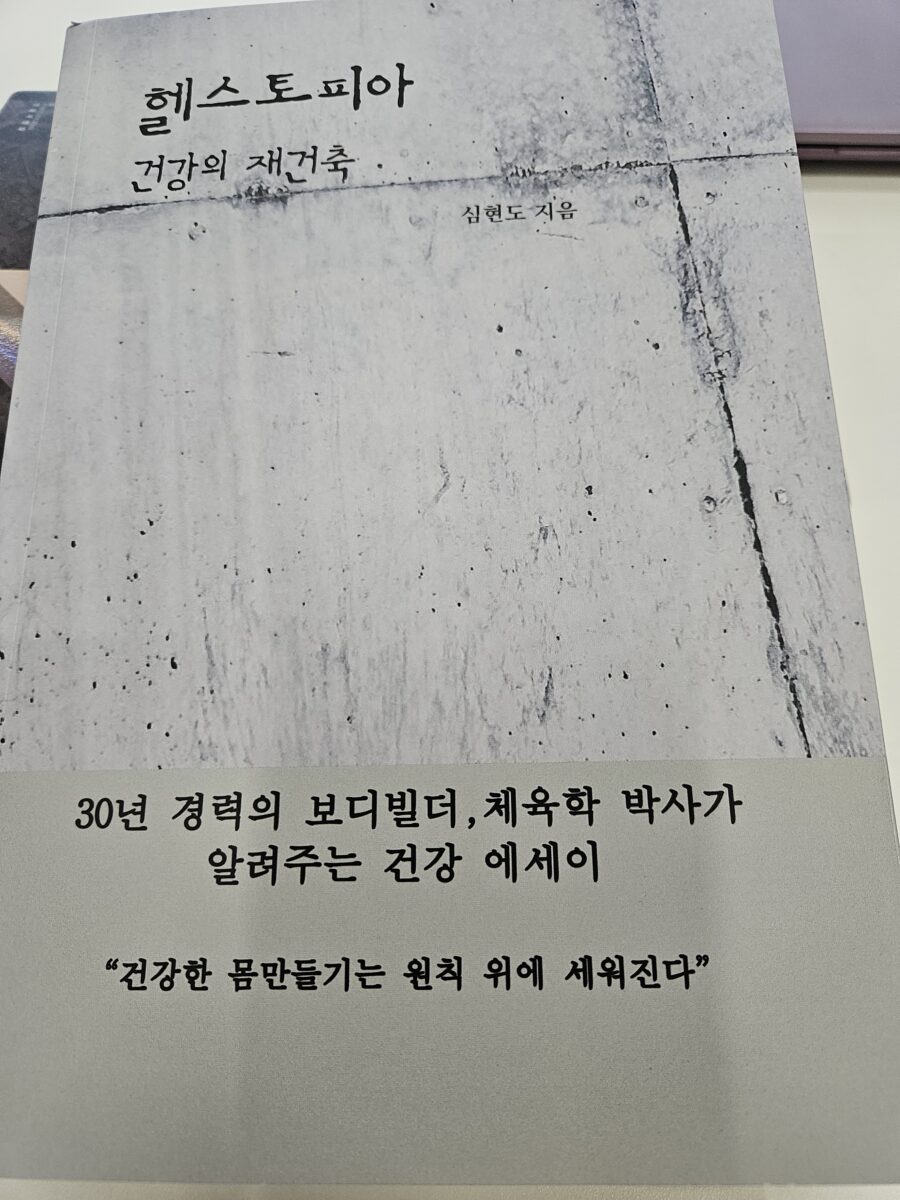 헬스토피아
건강의 재건축
심현도 지음
30년 경력의 보디빌더,체육학 박사가
알려주는 건강 에세이
“건강한 몸만들기는 원칙 위에 세워진다”